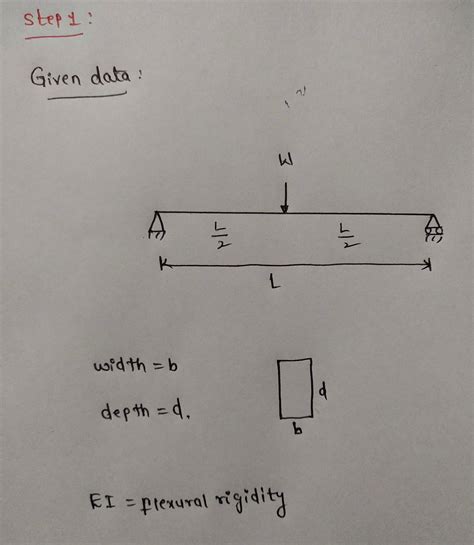 Step 1:
Given data:
W
L/2 L/2
L
width = b
depth = d.
d
b
EI = flexural rigidity